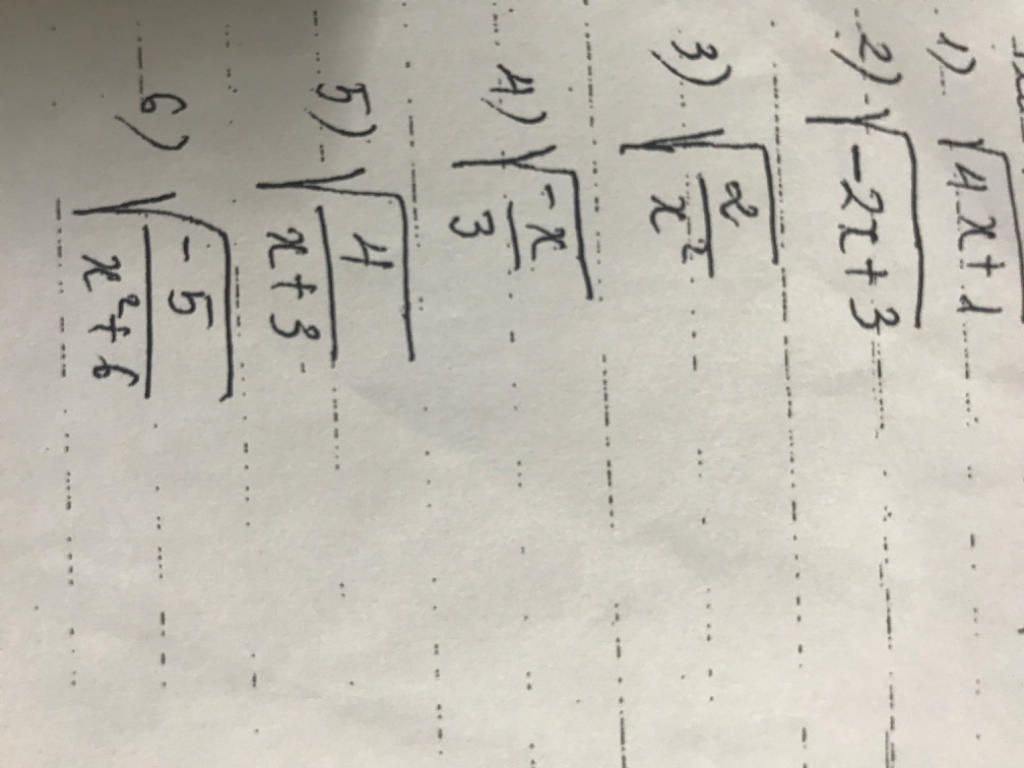 1) √(4x+1)
2) √(-2x+3)
3) √(2/x²)
4) √(-x/3)
5) √(4/(x+3))
6) √(-5/(x²+6))